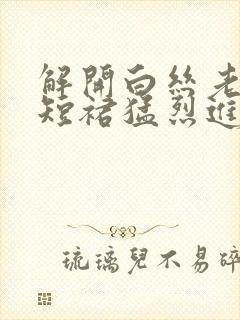 解開白絲老
短裙猛烈進
琉璃兒不易碎